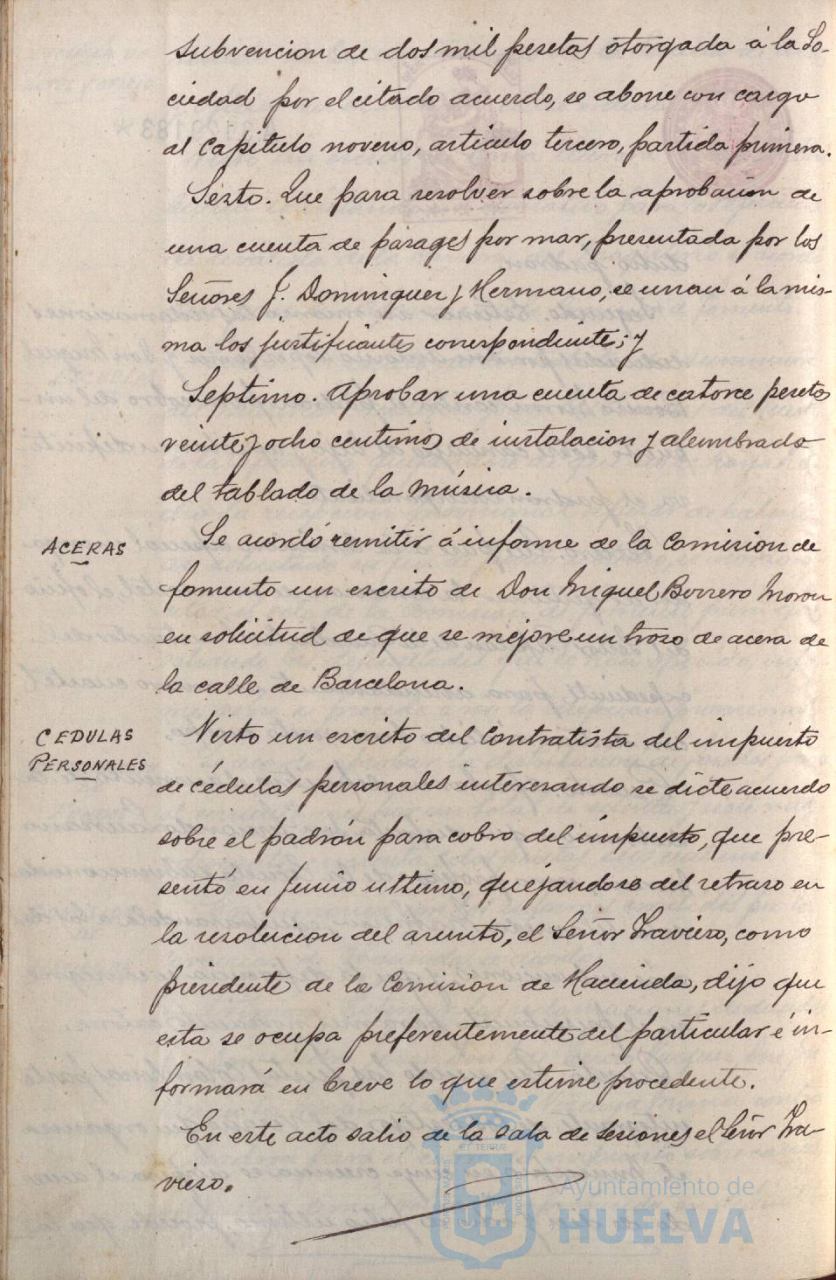 subvencion de dos mil pesetas otorgada á la So-
ciedad por el citado acuerdo, se abone con cargo
al capitulo noveno, articulo tercero, partida primera.
Sexto. Que para resolver sobre la aprobacion de
una cuenta de pasages por mar, presentada por los
Señores J. Dominguez y Hermano, se unan á la mis-
ma los justificantes correspondientes; y
Septimo. Aprobar una cuenta de catorce pesetas
veinte y ocho centimos de instalacion y alumbrado
del tablado de la música.
ACERAS
Se acordó remitir á informe de la Comision de
fomento un escrito de Don Miguel Borrero Moron
en solicitud de que se mejore un troso de acera de
la calle de Barcelona.
CEDULAS
PERSONALES
Visto un escrito del Contratista del impuesto
de cédulas personales interesando se dicte acuerdo
sobre el padrón para cobro del impuesto, que pre-
sentó en Junio ultimo, quejandose del retraso en
la resolucion del asunto, el Señor Travieso, como
presidente de la Comision de Hacienda, dijo que
esta se ocupa preferentemente del particular é in-
formará en breve lo que estime procedente.
En este acto salio de la sala de sesiones el Señor Tra-
vieso.
Ayuntamiento de
HUELVA